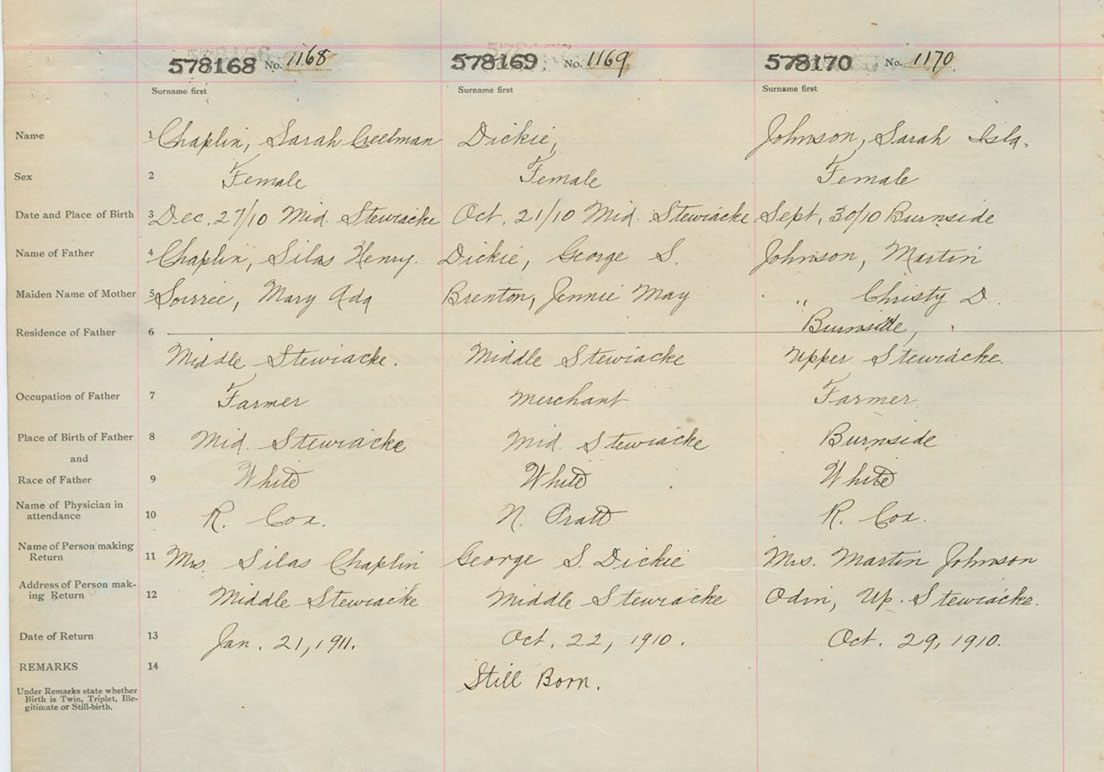 578168 No. 1168 578169 No. 1169 578170 No. 1170
Surname first Surname first Surname first
Name 1 Chaplin, Sarah Creelman Dickie, Johnson, Sarah Isla.
Sex 2 Female Female Female
Date and Place of Birth 3 Dec. 27/10 Mid. Stewiacke Oct. 21/10 Mid. Stewiacke Sept. 30/10 Burnside
Name of Father 4 Chaplin, Silas Henry. Dickie, George S. Johnson, Martin
Maiden Name of Mother 5 Mary Ada Brenton, Jennie May " Christy D.
Burnside,
Residence of Father 6
Middle Stewiacke. Middle Stewiacke Upper Stewiacke.
Occupation of Father 7 Farmer Merchant Farmer
Place of Birth of Father 8 Mid. Stewiacke Mid. Stewiacke Burnside
and
Race of Father 9 White White White
Name of Physician in
attendance 10 R. Cox. N. Pratt R. Cox.
Name of Person making
Return 11 Mrs Silas Chaplin George S. Dickie Mrs. Martin Johnson
Address of Person mak-
ing Return 12 Middle Stewiacke Middle Stewiacke Odin, Up. Stewiacke.
Date of Return 13 Jan. 21, 1911. Oct. 22, 1910. Oct. 29, 1910.
REMARKS 14
Still Born.
Under Remarks state whether
Birth is Twin, Triplet, Ille-
gitimate or Still-birth.